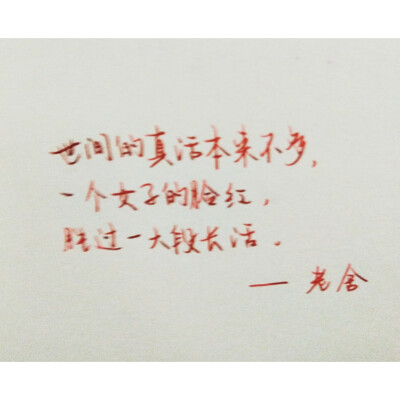 世间的真话本来不多，
一个女子的脸红，
胜过一大段长话。
——老舍